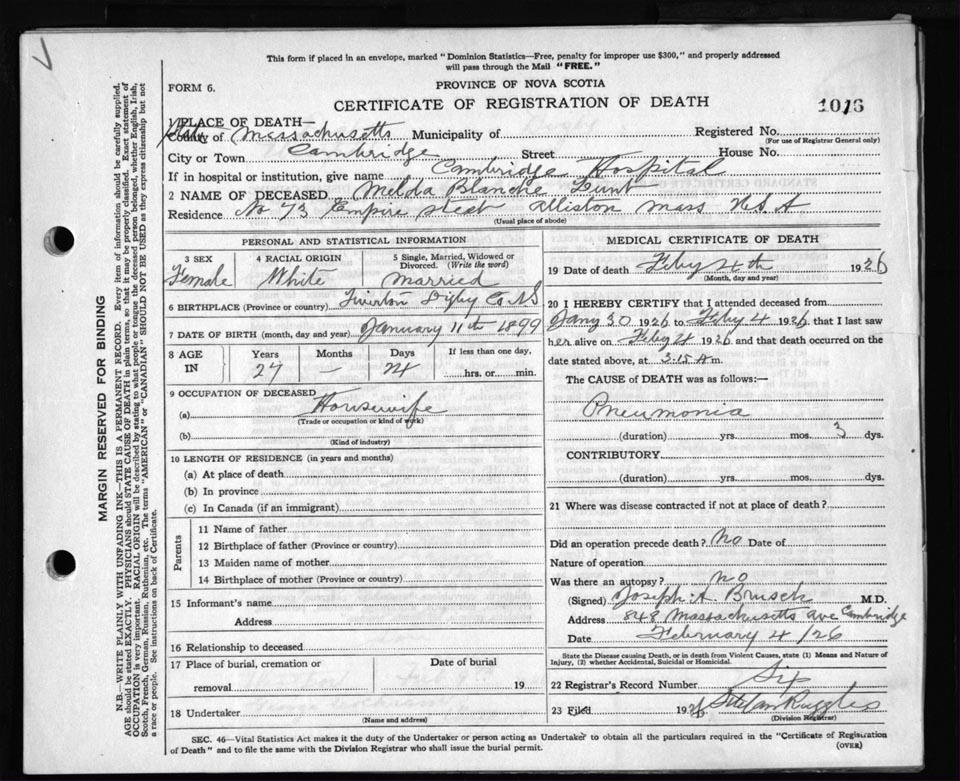 This form if placed in an envelope, marked "Dominion Statistics—Free, penalty for improper use $300," and properly addressed
will pass through the Mail "FREE."
FORM 6.
PROVINCE OF NOVA SCOTIA
CERTIFICATE OF REGISTRATION OF DEATH
1016
PLACE OF DEATH—
County of Massachusetts Municipality of Registered No.
(For use of Registrar General only)
City or Town Cambridge Street House No.
If in hospital or institution, give name Cambridge Hospital
2 NAME OF DECEASED Melda Blanche
Residence No 73 Empire street Allston Mass U.S.A
(Usual place of abode)
PERSONAL AND STATISTICAL INFORMATION
3 SEX
Female
4 RACIAL ORIGIN
White
5 Single, Married, Widowed or Divorced. (Write the word)
Married
6 BIRTHPLACE (Province or country) Tiverton Digby Co NS
7 DATE OF BIRTH (month, day and year) January 11th 1899
8 AGE IN
Years Months Days If less than one day,
27 — 24 hrs. or min.
9 OCCUPATION OF DECEASED
(a) Housewife
(Trade or occupation or kind of work)
(b)
(Kind of industry)
10 LENGTH OF RESIDENCE (in years and months)
(a) At place of death
(b) In province
(c) In Canada (if an immigrant)
Parents
11 Name of father
12 Birthplace of father (Province or country)
13 Maiden name of mother
14 Birthplace of mother (Province or country)
15 Informant's name
Address
16 Relationship to deceased
17 Place of burial, cremation or removal
Date of burial
19
18 Undertaker
(Name and address)
MEDICAL CERTIFICATE OF DEATH
19 Date of death Feby 4th 1926
(Month, day and year)
20 I HEREBY CERTIFY that I attended deceased from
Jany 30 1926 to Feby 4 1926, that I last saw
her alive on Feby 4 1926 and that death occurred on the
date stated above, at 3:15 A m.
The CAUSE OF DEATH was as follows:—
Pneumonia
(duration) yrs. mos. 3 dys.
CONTRIBUTORY
(duration) yrs. mos. dys.
21 Where was disease contracted if not at place of death?
Did an operation precede death? No Date of
Nature of operation
Was there an autopsy? no
(Signed) Joseph A M.D.
Address 848 Massachusetts Ave Cambridge
Date February 4/26
State the Disease causing Death, or in death from Violent Causes, state (1) Means and Nature of
Injury, (2) whether Accidental, Suicidal or Homicidal.
22 Registrar's Record Number Six
23 Filed 192 Ruggles
(Division Registrar)
SEC. 46—Vital Statistics Act makes it duty of the Undertaker or person acting as Undertaker to obtain all the particulars required in the "Certificate of Registration
of Death" and to file the same with the Division Registrar who shall issue the burial permit.
(OVER)
MARGIN RESERVED FOR BINDING
N.B.—WRITE PLAINLY WITH UNFADING INK—THIS IS A PERMANENT RECORD. Every item of information should be carefully supplied.
AGE should be stated EXACTLY. PHYSICIANS should STATE CAUSE OF DEATH in plain terms, so that it may be properly classified. Exact statement of
OCCUPATION is very important. RACIAL ORIGIN will be described by stating to what people or tongue the deceased person belonged, whether English, Irish,
Scotch, French, German, Russian, Ruthenian, etc. The terms "AMERICAN" or "CANADIAN" SHOULD NOT BE USED as they express citizenship but not
a race or people. See instructions on back of Certificate.